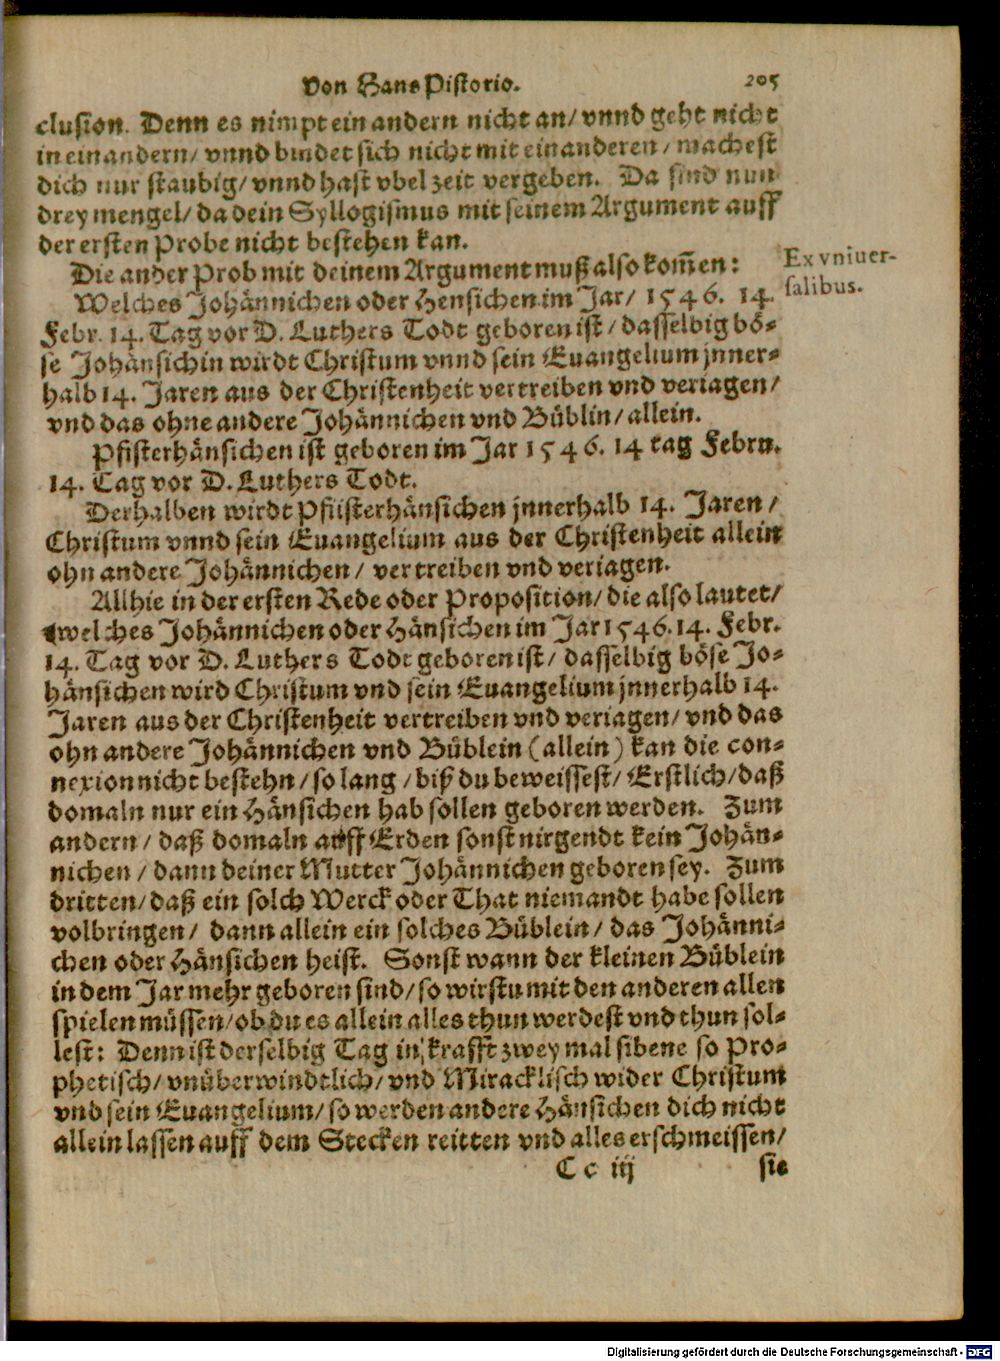 Von Hans Pistorio. 205
clusion. Denn es nimpt ein andern nicht an/ vnnd geht nicht
in einandern/ vnnd bindet sich nicht mit einanderen/ machest
dich nur staubig/ vnnd hast vbel zeit vergeben. Da sind nun
drey mengel/ da dein Syllogismus mit seinem Argument auff
der ersten Probe nicht bestehen kan.
Die ander Prob mit deinem Argument muß also kom̃en:
Ex vniuer-
salibus.
Welches Johännichen oder Hensichen im Jar/ 1546. 14.
Febr. 14. Tag vor D. Luthers Todt geboren ist/ dasselbig bö-
se Johänsichin wirdt Christum vnnd sein Euangelium jnner-
halb 14. Jaren aus der Christenheit vertreiben vnd veriagen/
vnd das ohne andere Johännichen vnd Büblin/ allein.
Pfisterhänsichen ist geboren im Jar 1546. 14 tag Febru.
14. Tag vor D. Luthers Todt.
Derhalben wirdt Pfiisterhänsichen jnnerhalb 14. Jaren/
Christum vnnd sein Euangelium aus der Christenheit allein
ohn andere Johännichen/ vertreiben vnd veriagen.
Allhie in der ersten Rede oder Proposition/ die also lautet/
welches Johännichen oder Hänsichen im Jar 1546. 14. Febr.
14. Tag vor D. Luthers Todt geboren ist/ dasselbig böse Jo-
hänsichen wird Christum vnd sein Euangelium jnnerhalb 14.
Jaren aus der Christenheit vertreiben vnd veriagen/ vnd das
ohn andere Johännichen vnd Büblein (allein) kan die con-
nexion nicht bestehn/ so lang/ biß du beweissest/ Erstlich/ daß
domaln nur ein Hänsichen hab sollen geboren werden. Zum
andern/ daß domaln auff Erden sonst nirgendt kein Johän-
nichen/ dann deiner Mutter Johännichen geboren sey. Zum
dritten/ daß ein solch Werck oder That niemandt habe sollen
volbringen/ dann allein ein solches Büblein/ das Johänni-
chen oder Hänsichen heist. Sonst wann der kleinen Büblein
in dem Jar mehr geboren sind/ so wirstu mit den anderen allen
spielen müssen/ ob du es allein alles thun werdest vnd thun sol-
lest: Denn ist derselbig Tag in krafft zwey mal sibene so Pro-
phetisch/ vnüberwindtlich/ vnd Miracklisch wider Christum
vnd sein Euangelium/ so werden andere Hänsichen dich nicht
allein lassen auff dem Stecken reitten vnd alles erschmeissen/
C c iij sie
Digitalisierung gefördert durch die Deutsche Forschungsgemeinschaft - DFG